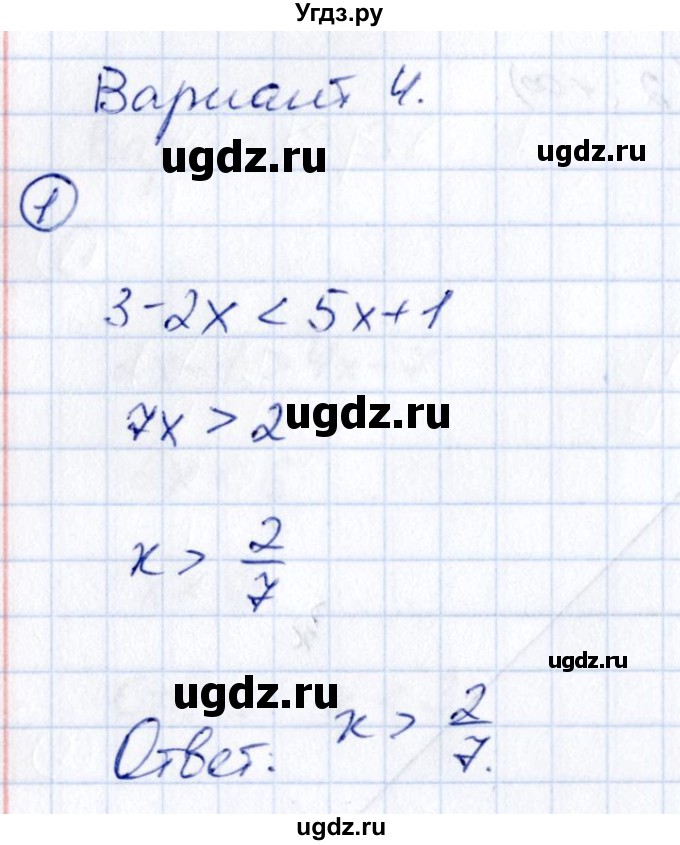 Угдз.ру
Вариант 4.
ugdz.ru
ugdz.ru
1
3-2x < 5x+1
7x > 2
ugdz.ru
x > 2/7
ugdz.ru
ugdz.ru
Ответ: x > 2/7.
ugdz.ru